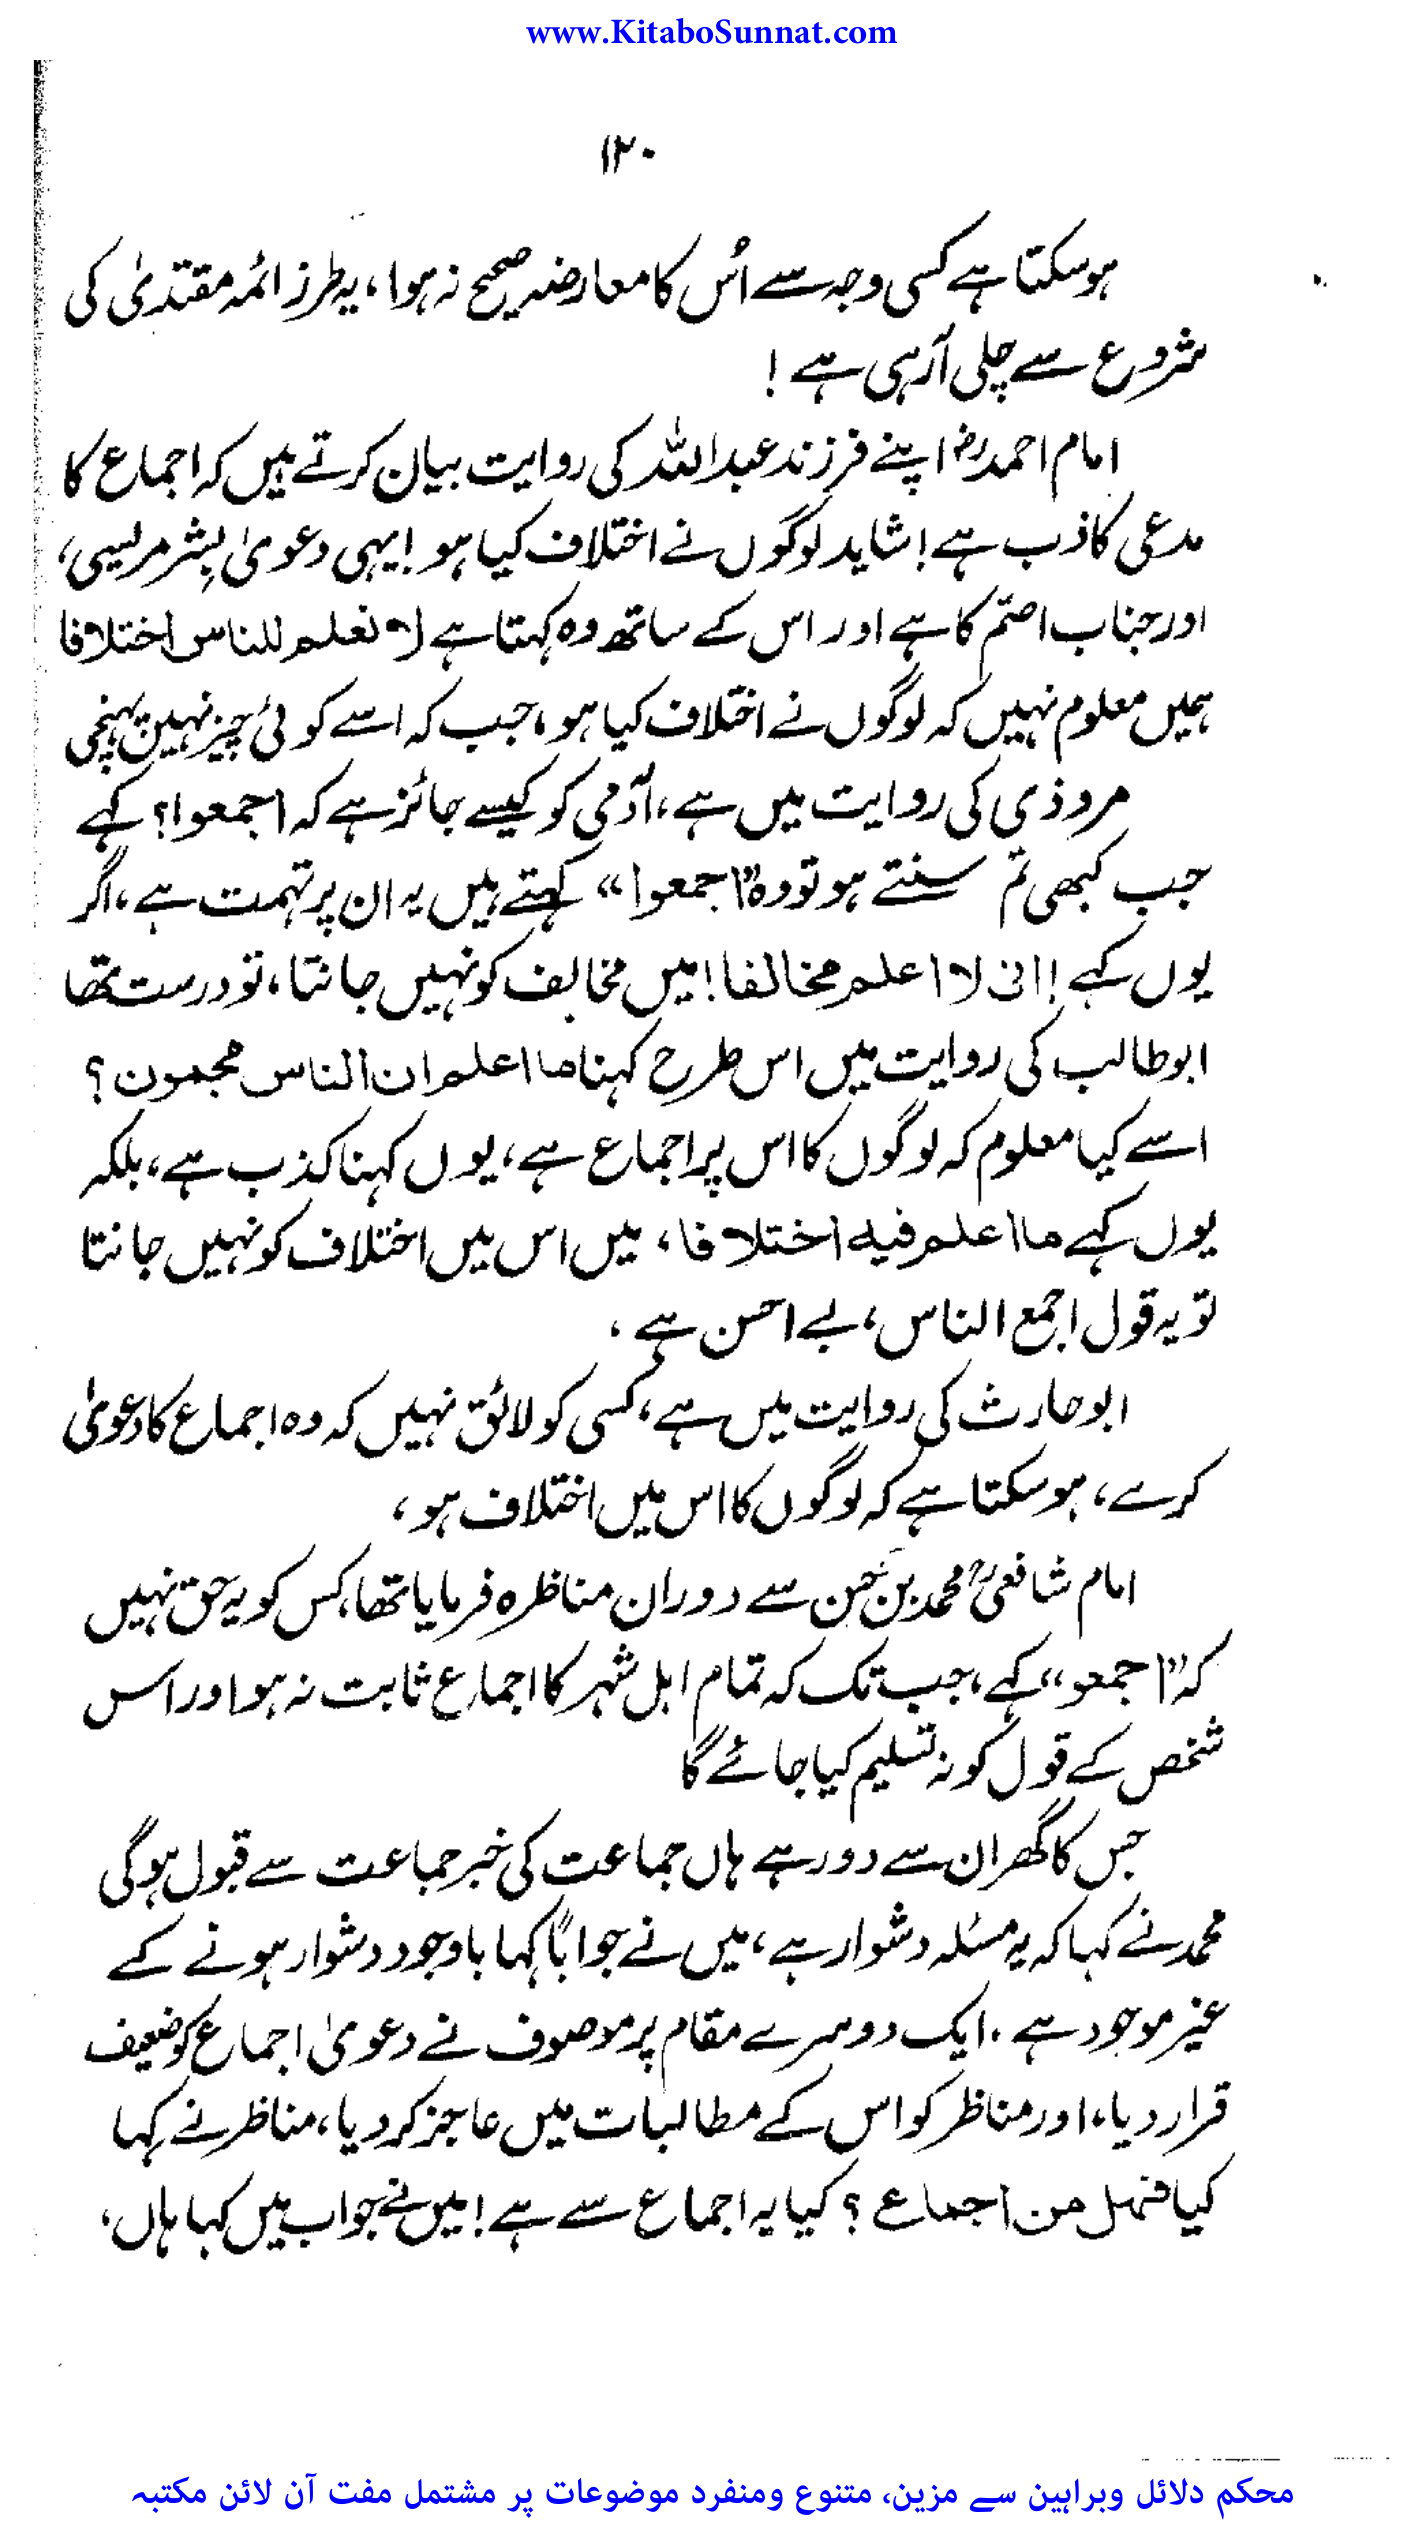 www.KitaboSunnat.com
۱۲۰
ہوسکتا ہے کسی وجہ سے اُس کا معارضہ صحیح نہ ہوا، یہ طرز ائمہ مقتدیٰ کی
شروع سے چلی آرہی ہے !
امام احمدرض اپنے فرزند عبداللہ کی روایت بیان کرتے ہیں کہ اجماع کا
مدعی کاذب ہے! شاید لوگوں نے اختلاف کیا ہو! یہی دعویٰ بِشر مریسی،
اور جناب اصمّ کا ہے اور اس کے ساتھ وہ کہتا ہے لا نعلم للناس اختلافا
ہمیں معلوم نہیں کہ لوگوں نے اختلاف کیا ہو، جب کہ اسے کوئی چیز نہیں پہنچی
مروذی کی روایت میں ہے، آدمی کو کیسے جائز ہے کہ اجمعوا؟ کہے
جب کبھی تم سنتے ہو تو وہ "اجمعوا" کہتے ہیں یہ ان پر تہمت ہے، اگر
یوں کہے! انی لا اعلم مخالفا! میں مخالف کو نہیں جانتا، تو درست تھا
ابوطالب کی روایت میں اس طرح کہنا ما اعلم ان الناس مجمعون ؟
اسے کیا معلوم کہ لوگوں کا اس پر اجماع ہے، یوں کہنا کذب ہے، بلکہ
یوں کہے ما اعلم فیہ اختلافا، میں اس میں اختلاف کو نہیں جانتا
تو یہ قول اجمع الناس، سے احسن ہے ،
ابوحارث کی روایت میں ہے، کسی کو لائق نہیں کہ وہ اجماع کا دعویٰ
کرے، ہوسکتا ہے کہ لوگوں کا اس میں اختلاف ہو،
امام شافعیؒ محمد بن حسن سے دوران مناظرہ فرمایا تھا، کس کو یہ حق نہیں
کہ "اجمعو" کہے، جب تک کہ تمام اہل شہر کا اجماع ثابت نہ ہو اور اس
شخص کے قول کو نہ تسلیم کیا جائے گا
جس کا گھر ان سے دور ہے ہاں جماعت کی خبر جماعت سے قبول ہوگی
محمد نے کہا کہ یہ مسئلہ دشوار ہے، میں نے جواباً کہا باوجود دشوار ہونے کے
غیر موجود ہے . ایک دوسرے مقام پر موصوف نے دعویٰ اجماع کو ضعیف
قرار دیا، اور مناظر کو اس کے مطالبات میں عاجز کر دیا، مناظر نے کہا
کیا فہل من اجماع ؟ کیا یہ اجماع سے ہے! میں نے جواب میں کہا ہاں،
محکم دلائل وبراہین سے مزین، متنوع ومنفرد موضوعات پر مشتمل مفت آن لائن مکتبہ